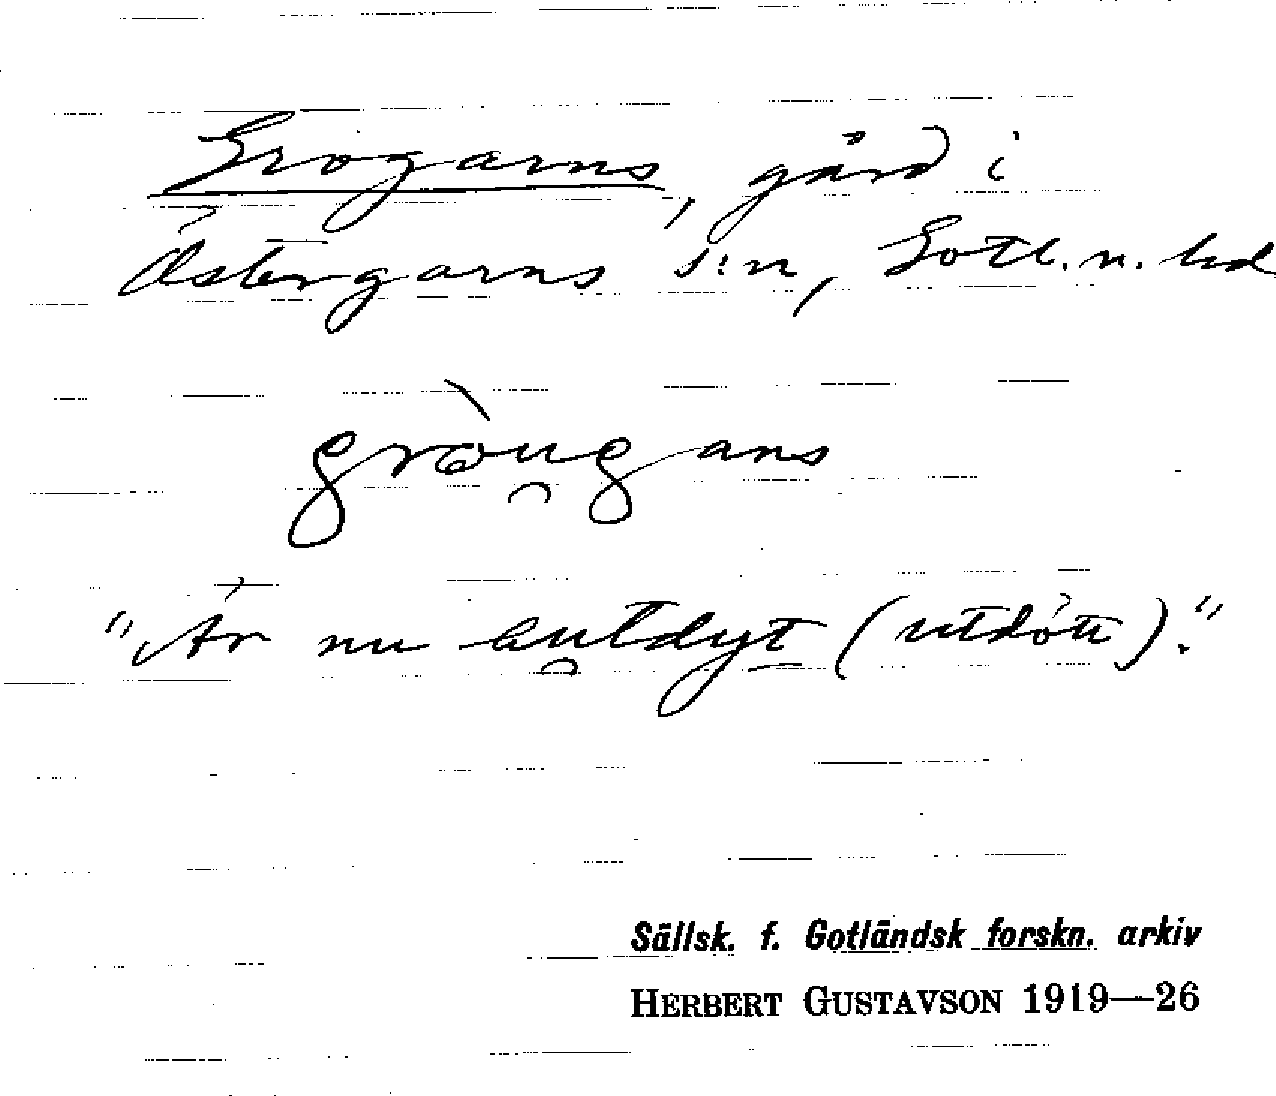 Grogarns, gård i
Östergarns s:n, Gotl. n. hd
gròu̯gans
"Är nu au̯tdyt (utdött)."
Sällsk. f. Gotländsk forskn. arkiv
HERBERT GUSTAVSON 1919—26